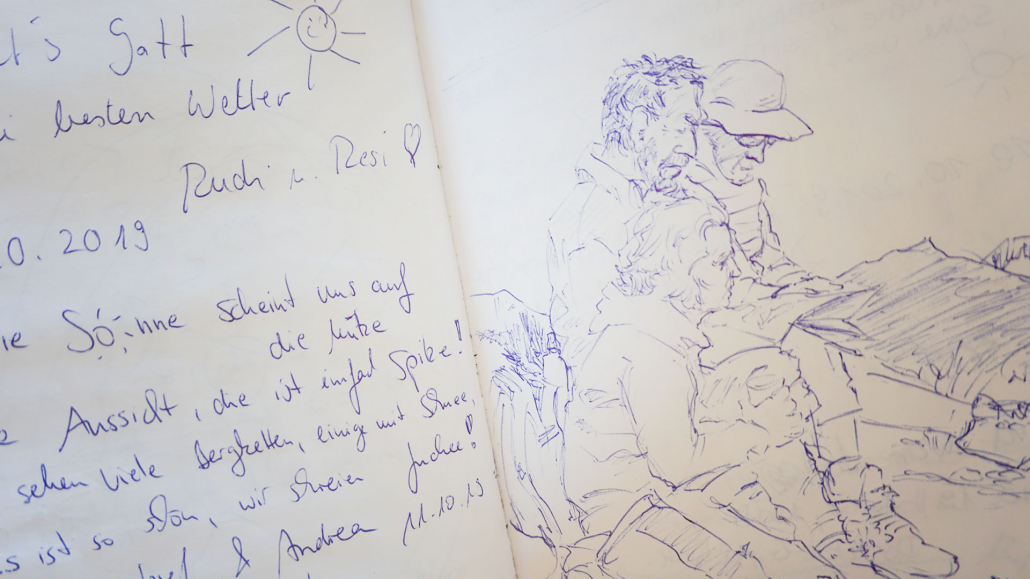 t's Gatt
bei besten Wetter!
Rudi u. Resi
10.2019
Die Sonne scheint uns auf
die Mütze
Aussicht, die ist einfach Spitze!
sehen viele Bergketten, einige mit Schnee,
es ist so schön, wir schreien Juchee!
Josef & Andrea 11.10.19